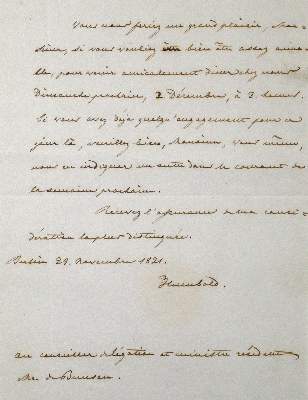 Vous nous feriez un grand plaisir, Mon-
sieur, si vous vouliez bien être assez aima-
ble, pour venir amicalement diner chez nous
Dimanche prochain, 2 Décembre, à 3 heures.
Si vous avez déja quelqu'engagement pour ce
jour là, veuillez bien, Monsieur, vous même,
nous en indiquer un autre dans le courant de
la semaine prochaine.
Recevez l'assurance de ma consi-
dération la plus distinguée.
Berlin 29. Novembre 1821.
Humboldt.
au conseiller de légation et ministre résident
Mr. de